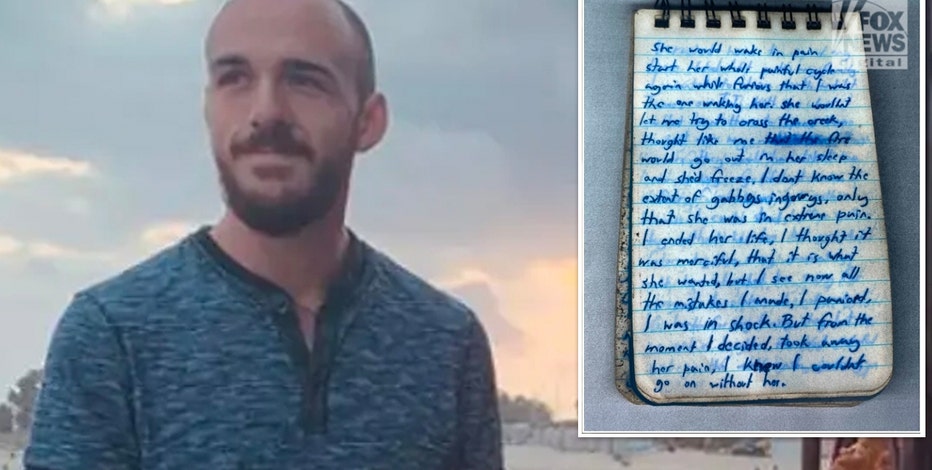 FOX
NEWS
Digital
She would wake in pain
start her whole painful cycle
again while furious that I was
the one waking her. she wouldnt
let me try to cross the creek,
thought like me that the fire
would go out in her sleep
and she'd freeze. I don't know the
extent of gabbys ingourys, only
that she was in extreme pain.
I ended her life, I thought it
was merciful, that it is what
she wanted, but I see now all
the mistakes I made, I paniced,
I was in shock. But from the
moment I decided, took away
her pain, I knew I couldnt
go on without her.